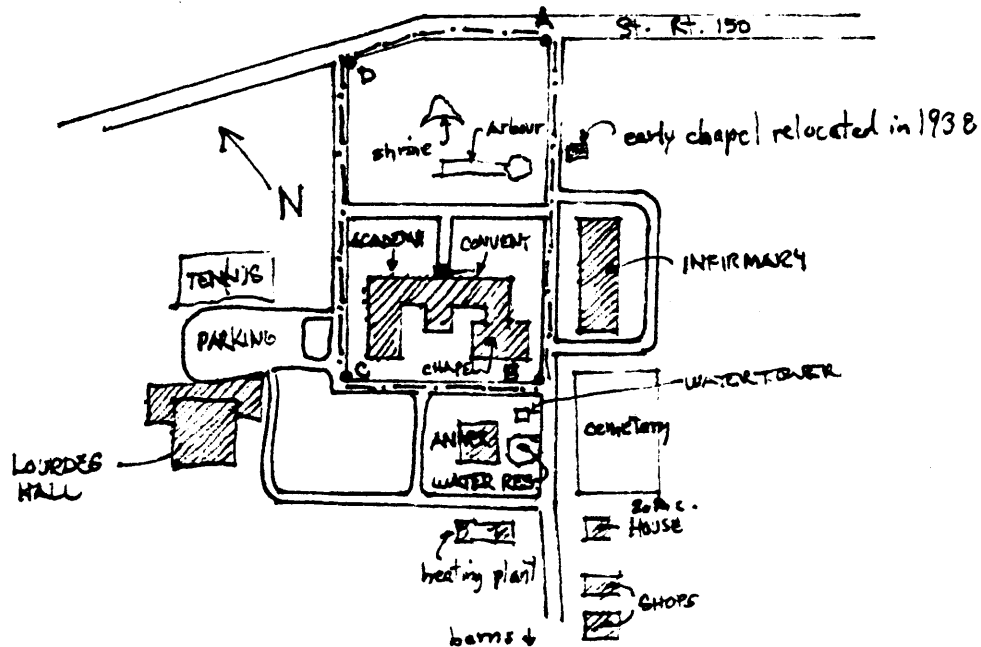 A
St. Rt. 150
D
shrine
Arbour
early chapel relocated in 1938
N
ACADEMY
CONVENT
INFIRMARY
TENNIS
PARKING
C
CHAPEL
B
WATER TOWER
cemetary
LOURDES
HALL
ANNEX
WATER RES
HOUSE
heating plant
SHOPS
barns